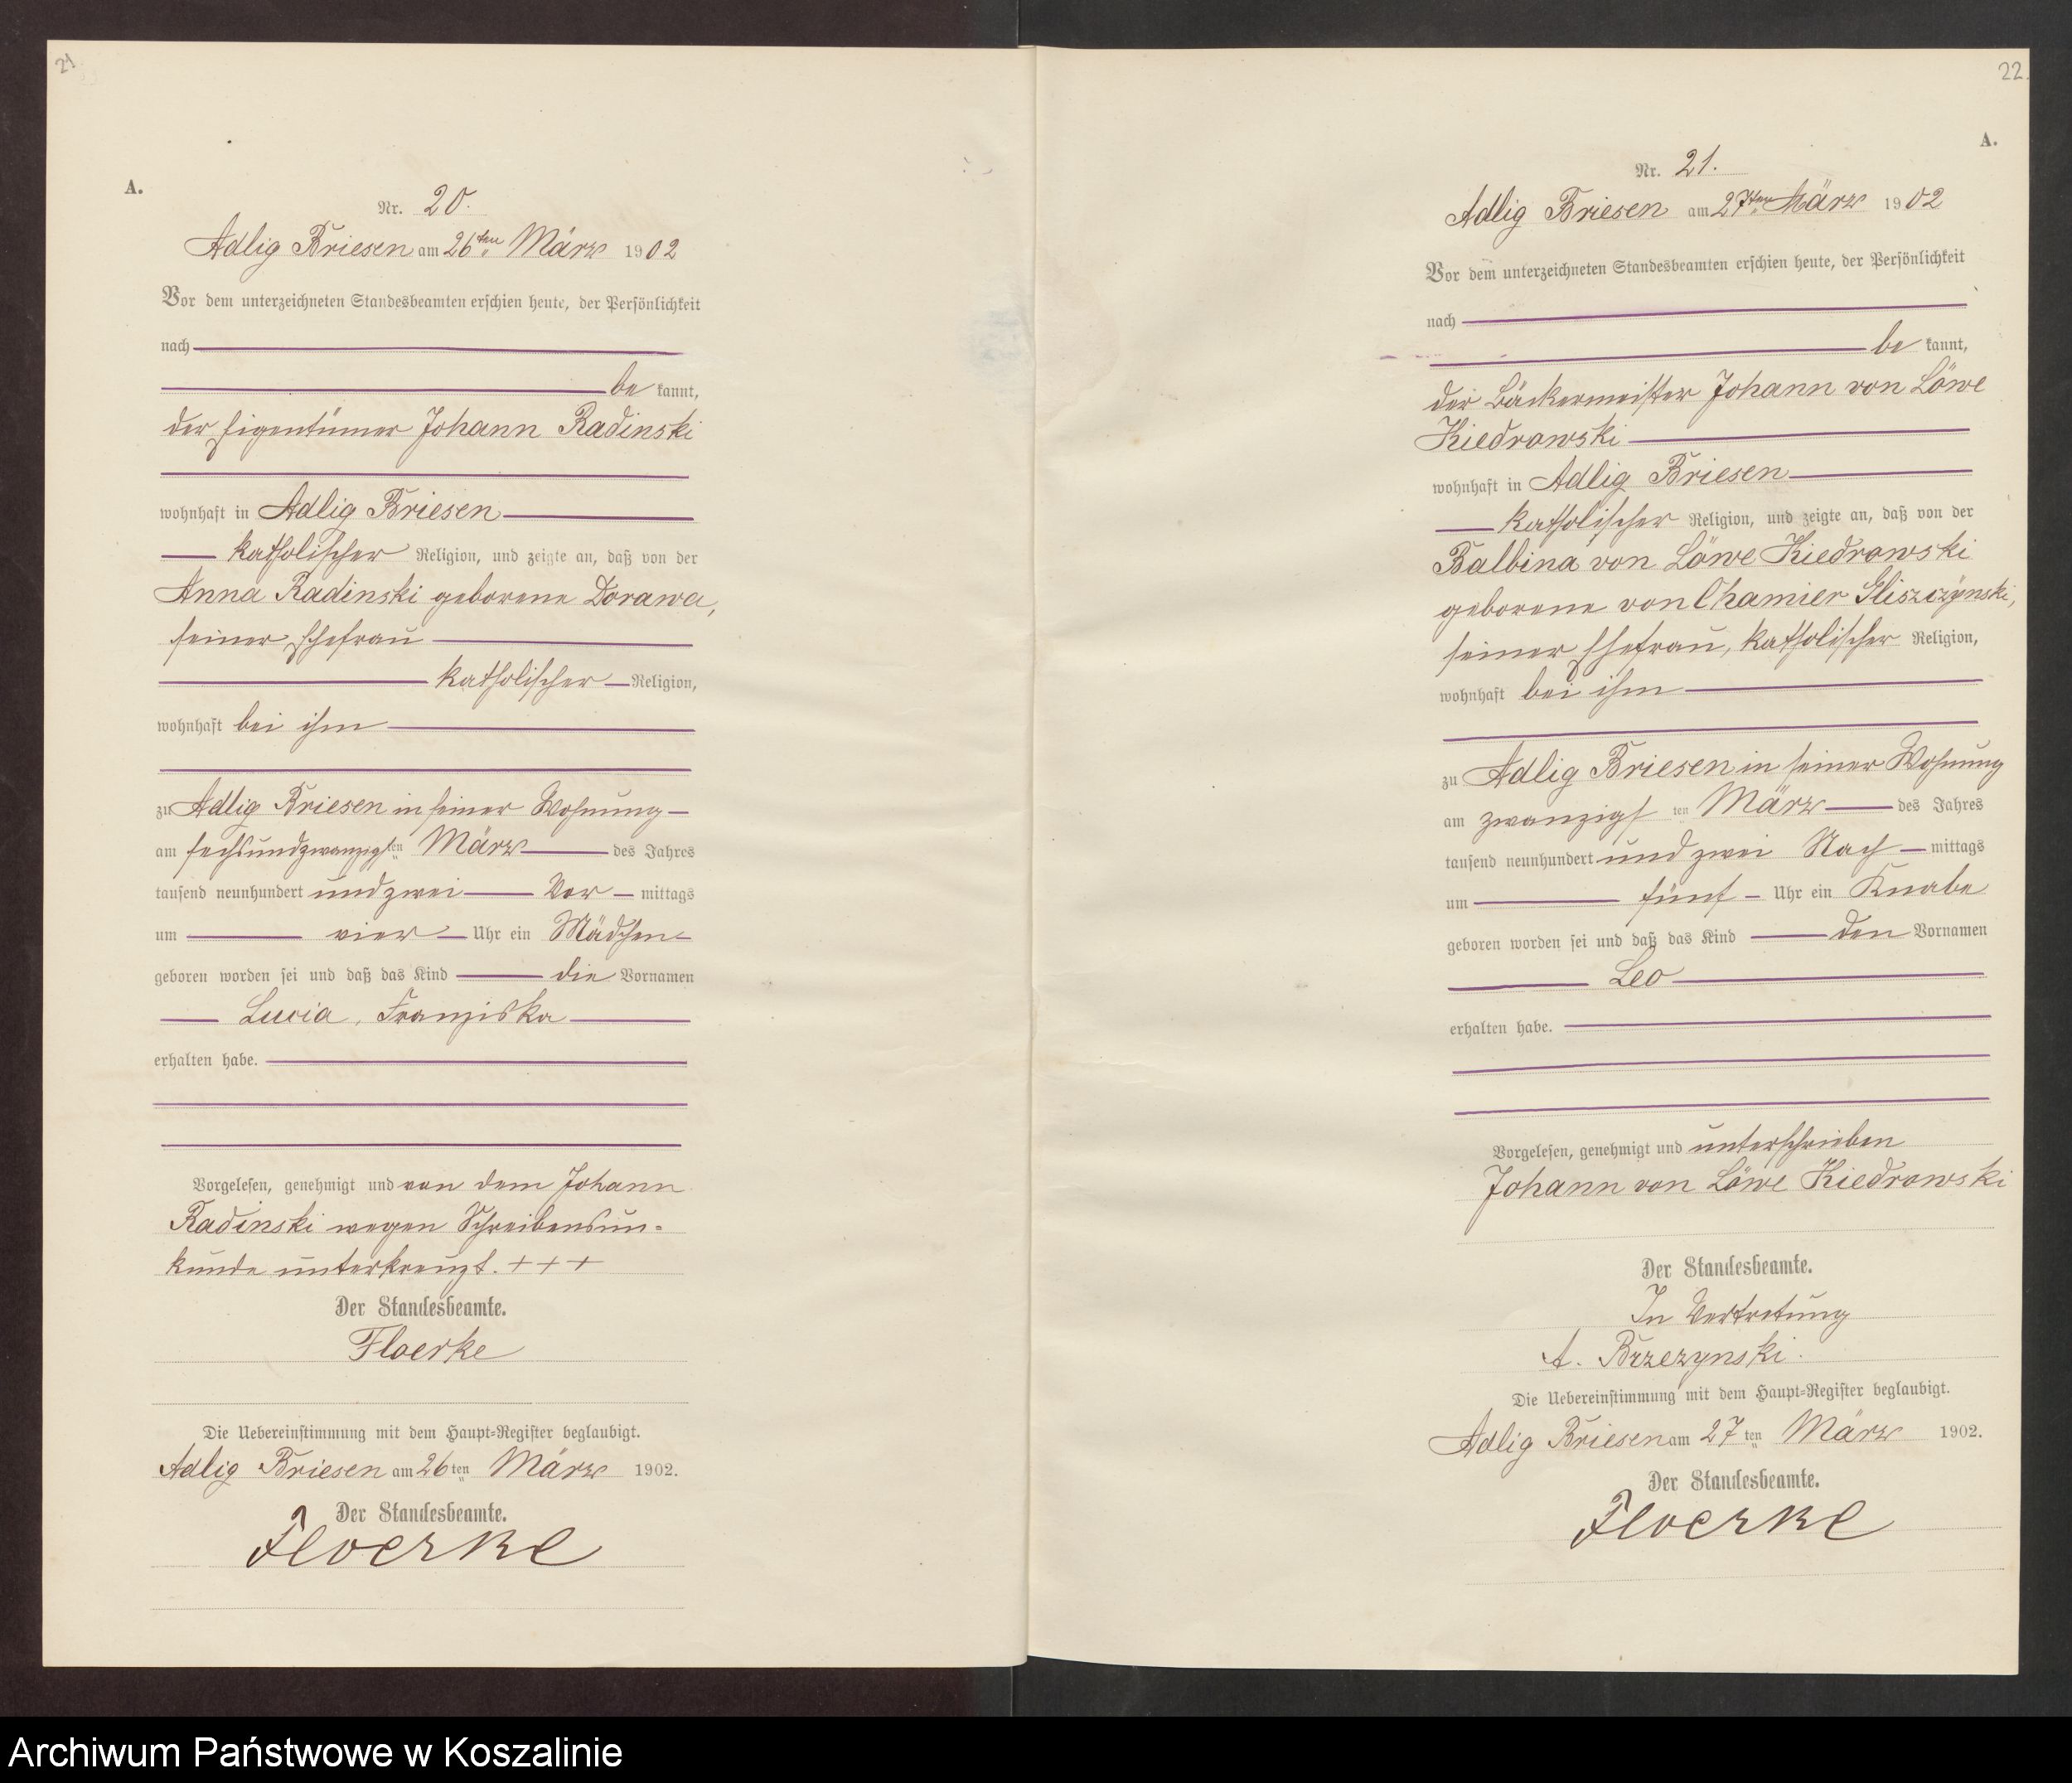 21
A.
Nr. 20.
Adlig Briesen am 26ten März 1902
Vor dem unterzeichneten Standesbeamten erschien heute, der Persönlichkeit
nach
be kannt,
der Eigentümer Johann Radinski
wohnhaft in Adlig Briesen
katholischer Religion, und zeigte an, daß von der
Anna Radinski geborene Dorawa,
seiner Ehefrau
katholischer Religion,
wohnhaft bei ihm
zu Adlig Briesen in seiner Wohnung
am sechsundzwanzigsten März des Jahres
tausend neunhundert und zwei Vor mittags
um vier Uhr ein Mädchen
geboren worden sei und daß das Kind die Vornamen
Lucia, Franziska
erhalten habe.
Vorgelesen, genehmigt und von dem Johann
Radinski wegen Schreibensun-
kunde unterkreuzt. +++
Der Standesbeamte.
Floerke
Die Uebereinstimmung mit dem Haupt-Register beglaubigt.
Adlig Briesen am 26ten März 1902.
Der Standesbeamte.
Floerke
22.
A.
Nr. 21.
Adlig Briesen am 27ten März 1902
Vor dem unterzeichneten Standesbeamten erschien heute, der Persönlichkeit
nach
be kannt,
der Bäckermeister Johann von Löwe
Kiedrowski
wohnhaft in Adlig Briesen
katholischer Religion, und zeigte an, daß von der
Balbina von Löwe Kiedrowski
geborene von Chamier Gliszczynski,
seiner Ehefrau, katholischer Religion,
wohnhaft bei ihm
zu Adlig Briesen in seiner Wohnung
am zwanzigsten März des Jahres
tausend neunhundert und zwei Nach mittags
um fünf Uhr ein Knabe
geboren worden sei und daß das Kind den Vornamen
Leo
erhalten habe.
Vorgelesen, genehmigt und unterschrieben
Johann von Löwe Kiedrowski
Der Standesbeamte.
In Vertretung
A. Brzezynski.
Die Uebereinstimmung mit dem Haupt-Register beglaubigt.
Adlig Briesen am 27ten März 1902.
Der Standesbeamte.
Floerke
Archiwum Państwowe w Koszalinie